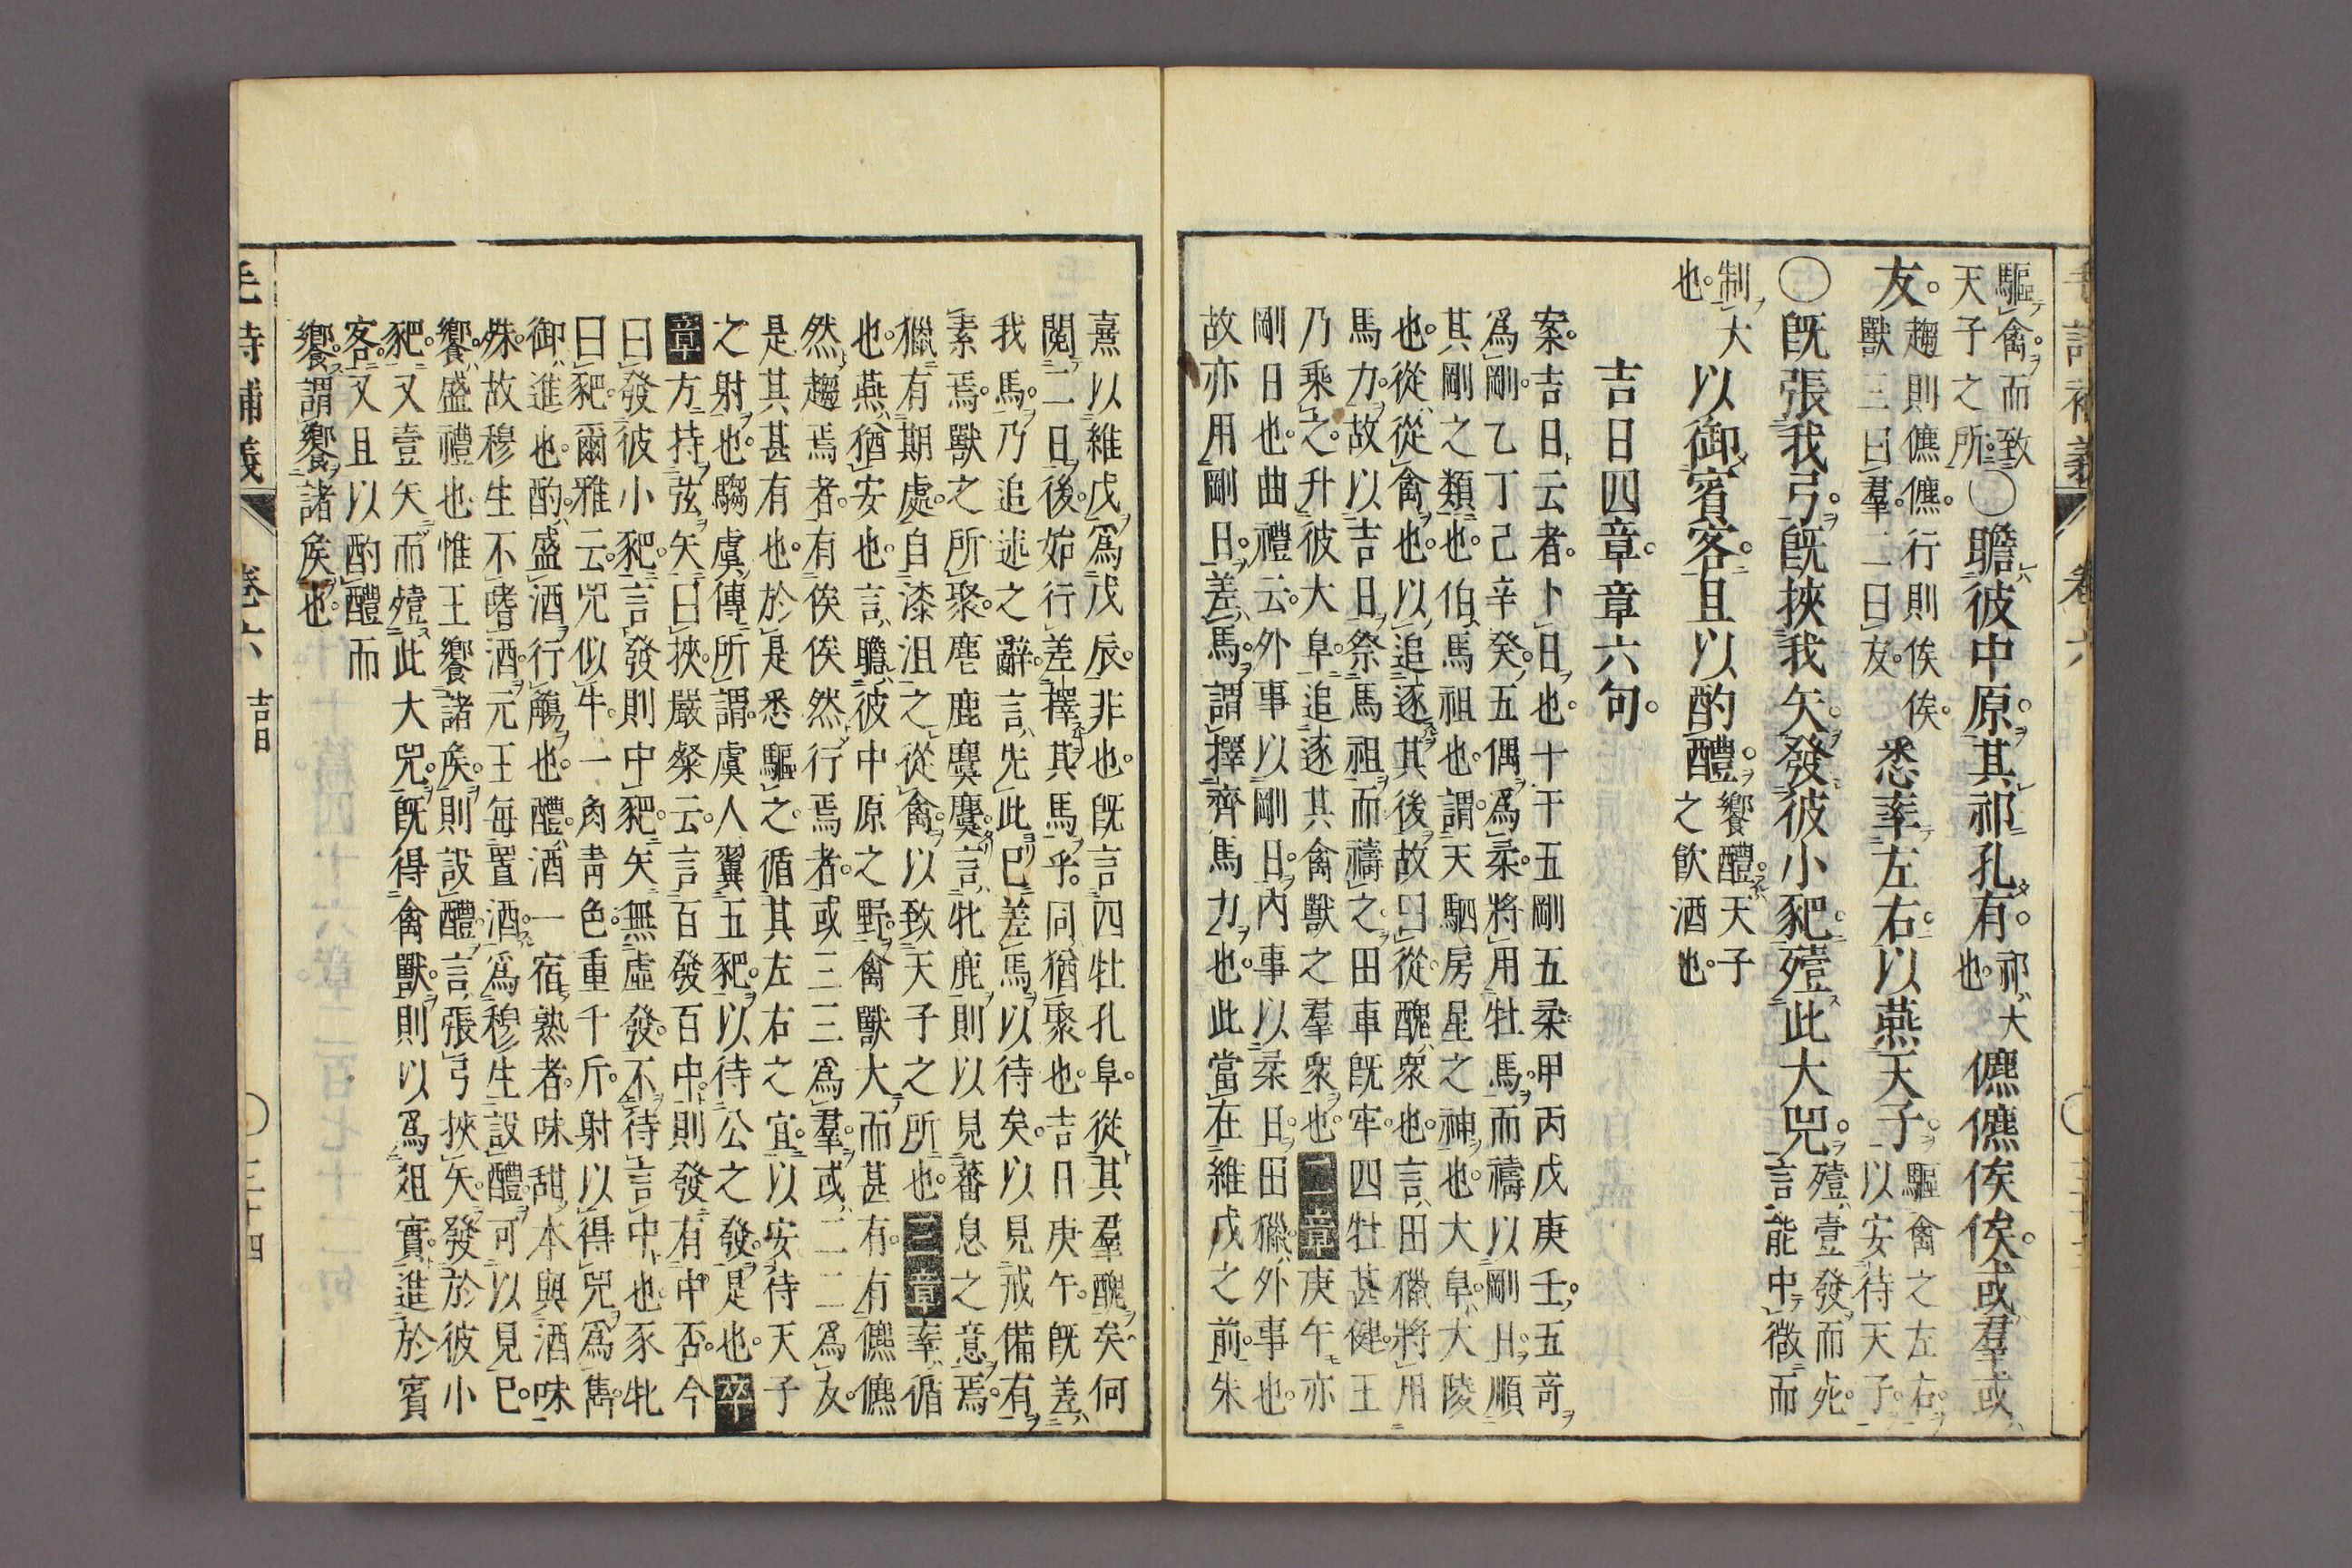 驅禽而致
天子之所○瞻彼中原其祁孔有祁大也儦儦俟俟或羣或
友趨則儦儦行則俟俟獸三曰羣二曰友悉率左右以燕天子驅禽之左右以安待天子
○既張我弓既挾我矢發彼小豝殪此大兕殪壹發而死言能中微而
制大也以御賓客且以酌醴饗醴天子之飮酒也
吉日四章章六句
案吉日云者卜日也十干五剛五柔甲丙戊庚壬五奇
爲剛乙丁己辛癸五偶爲柔將用牡馬而禱以剛日順
其剛之類也伯馬祖也謂天駟房星之神也大阜大陵
也從從禽也以追逐其後故曰從醜衆也言田獵將用
馬力故以吉日祭馬祖而禱之田車既牢四牡甚健王
乃乘之升彼大阜追逐其禽獸之羣衆也二章庚午亦
剛日也曲禮云外事以剛日內事以柔日田獵外事也
故亦用剛日差馬謂擇齊馬力也此當在維戊之前朱
熹以維戊爲戊辰非也既言四牡孔阜從其羣醜矣何
閱二日後始行差擇其馬乎同猶聚也吉日庚午既差
我馬乃追述之辭言先此已差馬以待矣以見戒備有
素焉獸之所聚麀鹿麌麌言牝鹿則以見蕃息之意焉
獵有期處自漆沮之從禽以致天子之所也三章率循
也燕猶安也言瞻彼中原之野禽獸大而甚有有儦儦
然趨焉者有俟俟然行焉者或三三爲羣或二二爲友
是其甚有也於是悉驅之循其左右之宜以安待天子
之射也騶虞傳所謂虞人翼五豝以待公之發是也卒
章方持弦矢曰挾嚴粲云言百發百中則發有中否今
曰發彼小豝言發則中豝矢無虛發不待言中也豕牝
曰豝爾雅云兕似牛一角靑色重千斤射以得兕爲雋
御進也酌盛酒行觴也醴酒一宿熟者味甜本與酒味
殊故穆生不嗜酒元王每置酒爲穆生設醴可以見已
饗盛禮也惟王饗諸矦則設醴言張弓挾矢發於彼小
豝又壹矢而殪此大兕既得禽獸則以爲俎實進於賓
客又且以酌醴而
饗謂饗諸矦也
毛詩補義 卷六 吉日 ○三十四